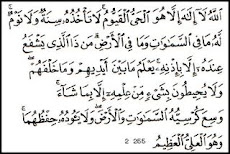 اللَّهُ لَا إِلَٰهَ إِلَّا هُوَ الْحَيُّ الْقَيُّومُ لَا تَأْخُذُهُ سِنَةٌ وَلَا نَوْمٌ
لَهُ مَا فِي السَّمَاوَاتِ وَمَا فِي الْأَرْضِ مَن ذَا الَّذِي يَشْفَعُ
عِندَهُ إِلَّا بِإِذْنِهِ يَعْلَمُ مَا بَيْنَ أَيْدِيهِمْ وَمَا خَلْفَهُمْ
وَلَا يُحِيطُونَ بِشَيْءٍ مِّنْ عِلْمِهِ إِلَّا بِمَا شَاءَ
وَسِعَ كُرْسِيُّهُ السَّمَاوَاتِ وَالْأَرْضَ وَلَا يَئُودُهُ حِفْظُهُمَا
وَهُوَ الْعَلِيُّ الْعَظِيمُ 2 255